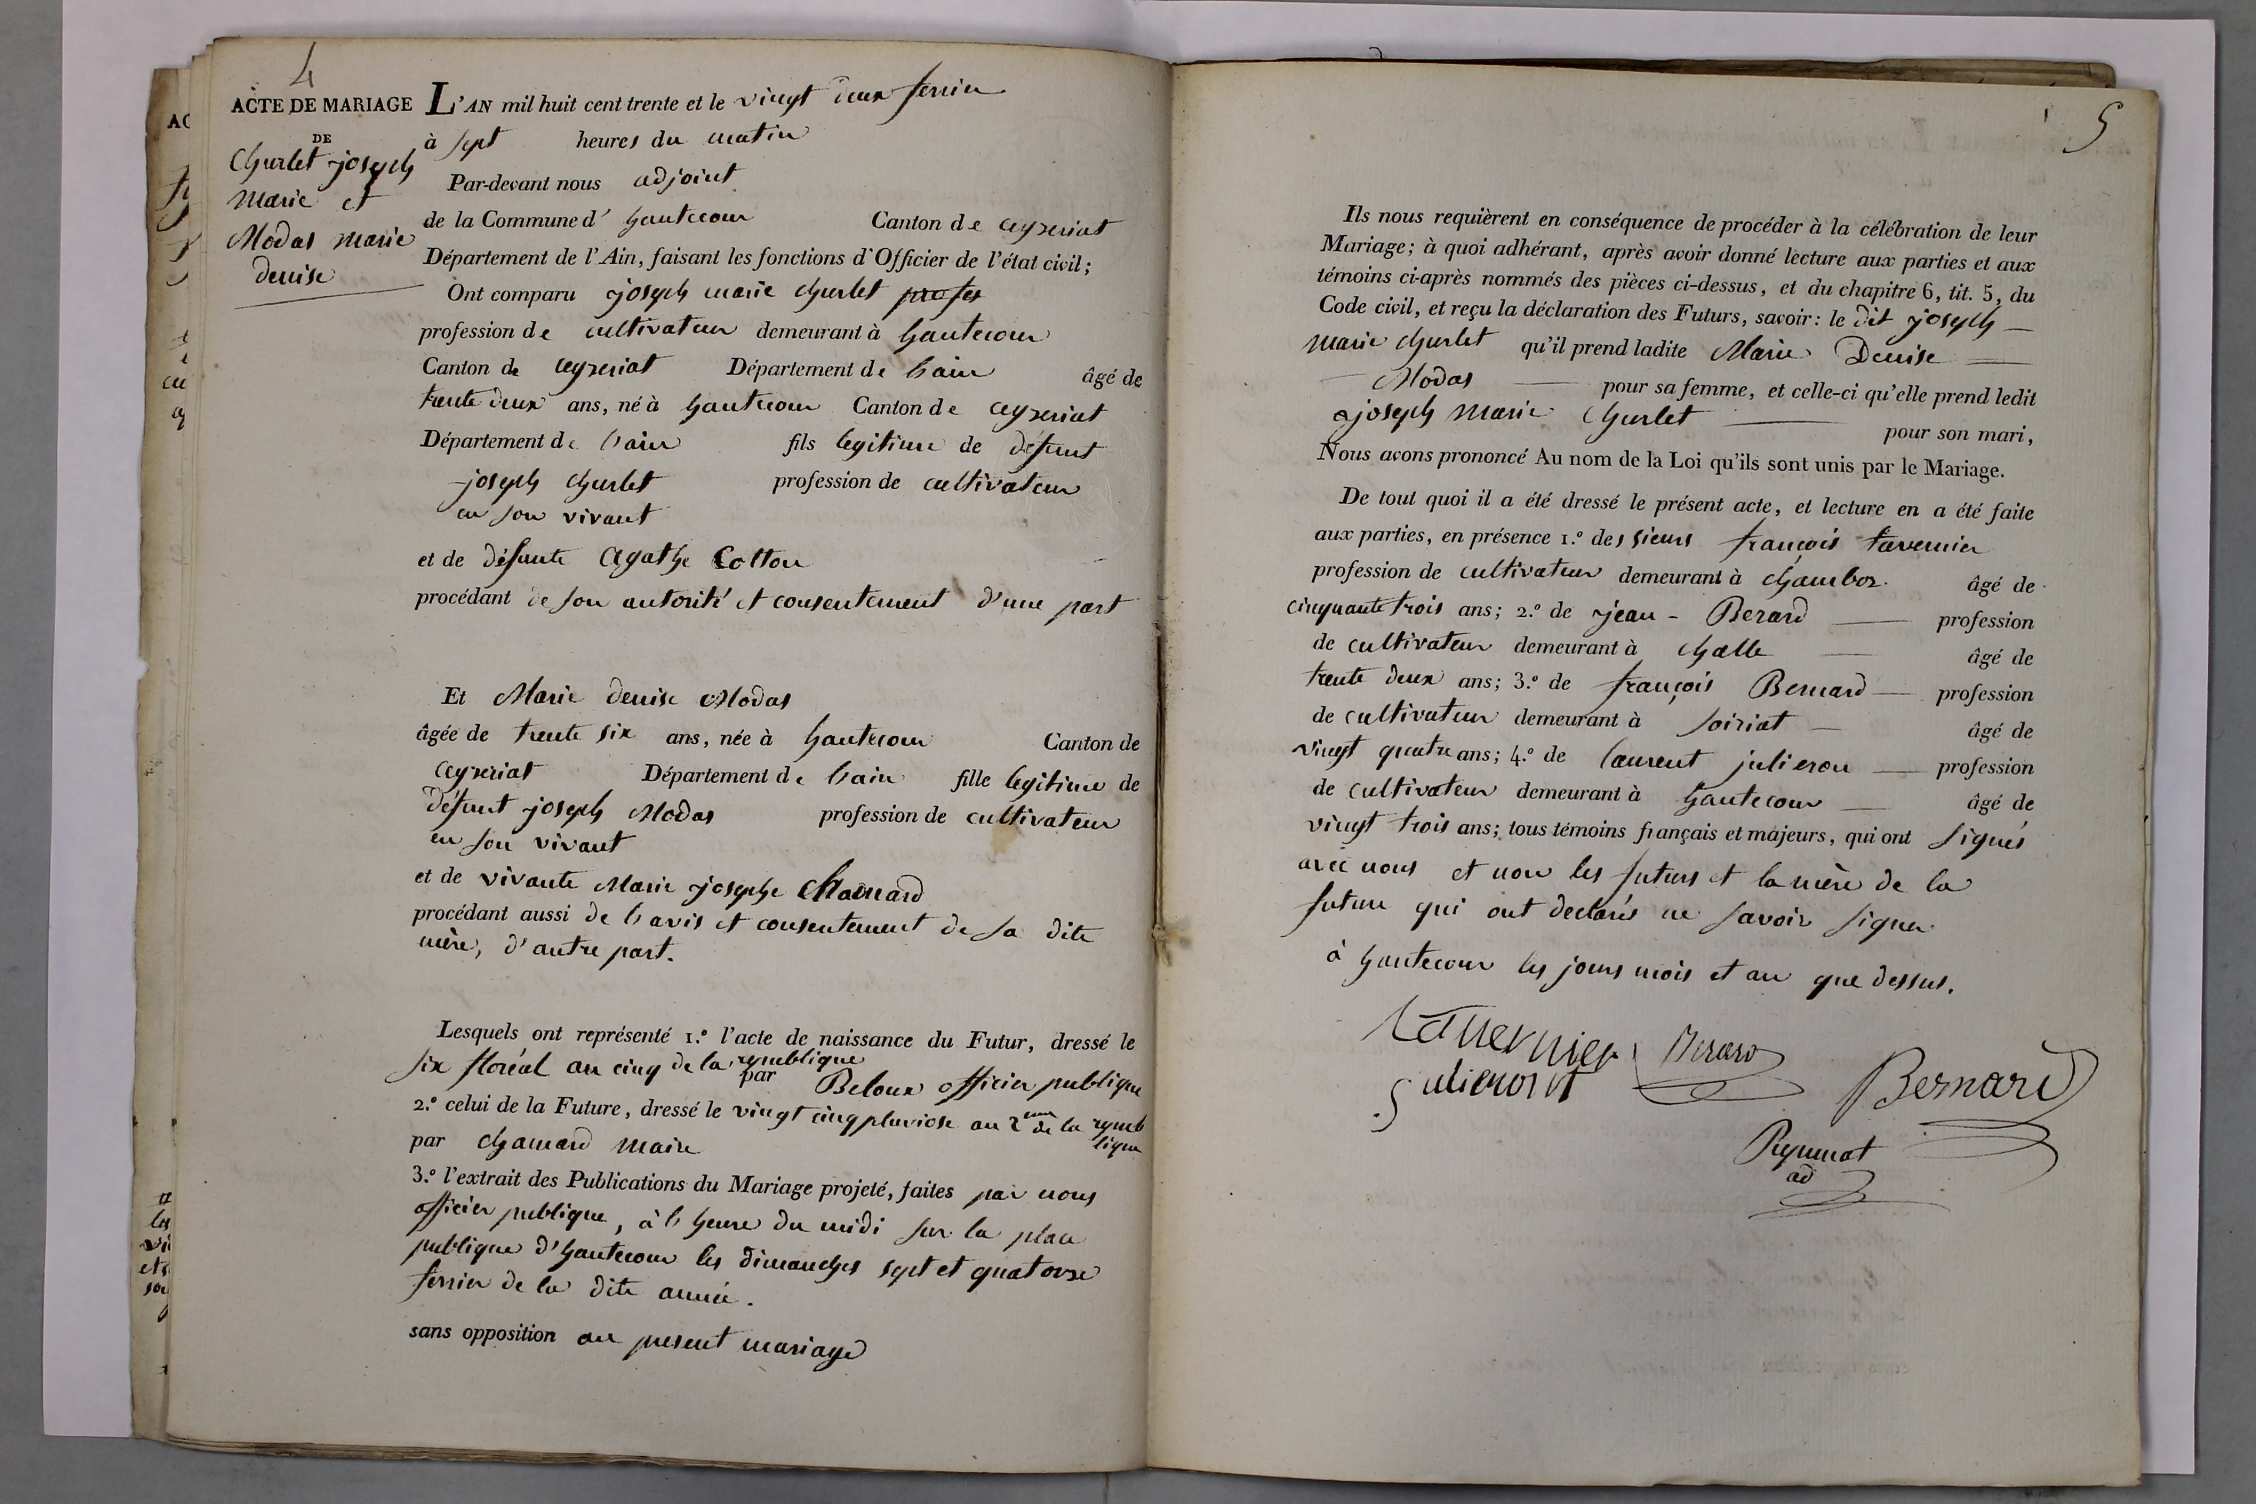 4
ACTE DE MARIAGE
DE
Churlet joseph
Marie et
Modas marie
denise
L'AN mil huit cent trente et le vingt deux fevrier
à sept heures du matin
Par-devant nous adjoint
de la Commune d' hautecour Canton de ceyzeriat
Département de l'Ain, faisant les fonctions d'Officier de l'état civil;
Ont comparu joseph marie churlet
profession de cultivateur demeurant à hautecour
Canton de ceyzeriat Département de l'ain âgé de
trente deux ans, né à hautecour Canton de ceyzeriat
Département de l'ain fils legitime de défunt
joseph churlet profession de cultivateur
en son vivant
et de défunte agathe Cotton
procédant de son autorité et consentement d'une part
Et Marie denise Modas
âgée de trente six ans, née à hautecour Canton de
ceyzeriat Département de l'ain fille legitime de
défunt joseph Modas profession de cultivateur
en son vivant
et de vivante Marie josephe
procédant aussi de l'avis et consentement de sa dite
mère, d'autre part.
Lesquels ont représenté 1.º l'acte de naissance du Futur, dressé le
six floréal an cinq de la republique
par Beloux officier publique
2.º celui de la Future, dressé le vingt cinq pluviose an 2eme de la repub
lique
par chanard maire
3.º l'extrait des Publications du Mariage projeté, faites par nous
officier publique, à l'heure du midi sur la place
publique d'hautecour les dimanches sept et quatorze
fevrier de la dite année.
sans opposition au present mariage
5
Ils nous requièrent en conséquence de procéder à la célébration de leur
Mariage; à quoi adhérant, après avoir donné lecture aux parties et aux
témoins ci-après nommés des pièces ci-dessus, et du chapitre 6, tit. 5, du
Code civil, et reçu la déclaration des Futurs, savoir: le dit joseph
marie churlet qu'il prend ladite Marie Denise
Modas pour sa femme, et celle-ci qu'elle prend ledit
joseph marie churlet pour son mari,
Nous avons prononcé Au nom de la Loi qu'ils sont unis par le Mariage.
De tout quoi il a été dressé le présent acte, et lecture en a été faite
aux parties, en présence 1.º des sieurs françois tavernier
profession de cultivateur demeurant à chambos. âgé de
cinquante trois ans; 2.º de jean - Berard profession
de cultivateur demeurant à challe âgé de
trente deux ans; 3.º de françois Bernard profession
de cultivateur demeurant à soiriat âgé de
vingt quatre ans; 4.º de laurent julieron profession
de cultivateur demeurant à hautecour âgé de
vingt trois ans; tous témoins français et majeurs, qui ont signés
avec nous et non les futurs et la mère de la
future qui ont declarés ne savoir signer
à hautecour les jours mois et an que dessus.
tavernier Berard
julieron Bernard
ad